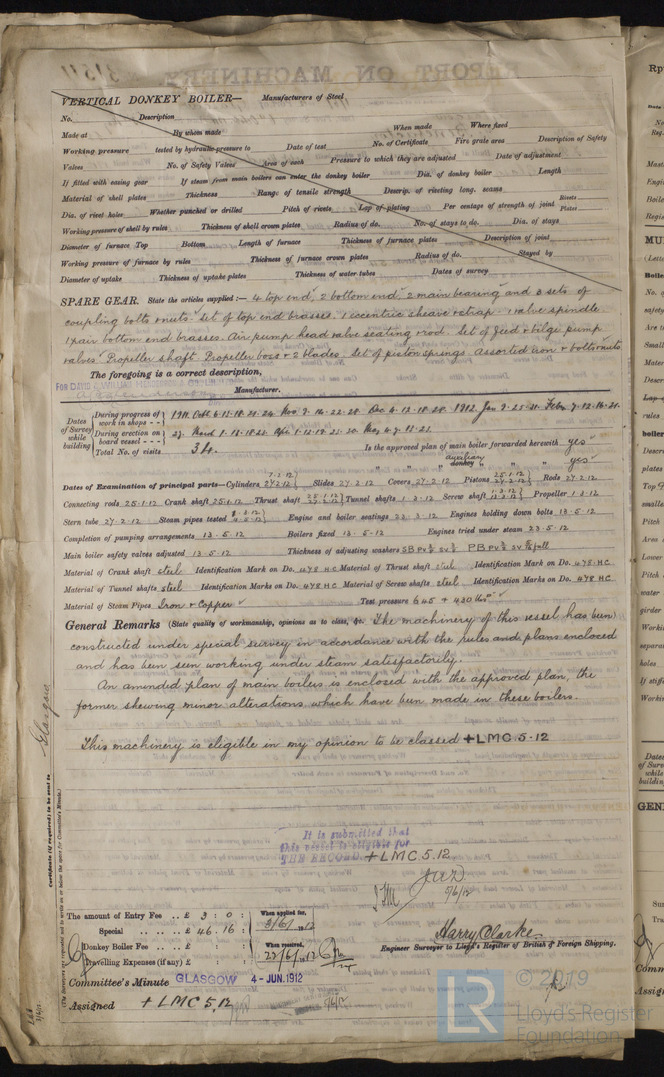 REPORT ON MACHINERY
VERTICAL DONKEY BOILER— Manufacturers of Steel
No. Description
Made at By whom made When made Where fixed
Working pressure tested by hydraulic pressure to Date of test No. of Certificate Fire grate area Description of Safety
Valves No. of Safety Valves Area of each Pressure to which they are adjusted Date of adjustment
If fitted with easing gear If steam from main boilers can enter the donkey boiler Dia. of donkey boiler Length
Material of shell plates Thickness Range of tensile strength Descrip. of riveting long. seams
Dia. of rivet holes Whether punched or drilled Pitch of rivets Lap of plating Per centage of strength of joint Rivets Plates
Working pressure of shell by rules Thickness of shell crown plates Radius of do. No. of stays to do. Dia. of stays
Diameter of furnace Top Bottom Length of furnace Thickness of furnace plates Description of joint
Working pressure of furnace by rules Thickness of furnace crown plates Radius of do. Stayed by
Diameter of uptake Thickness of uptake plates Thickness of water tubes Dates of survey
SPARE GEAR. State the articles supplied :— 4 top end, 2 bottom end, 2 main bearing and 3 sets of
coupling bolts & nuts. Set of top end brasses. 1 eccentric sheave & strap. 1 valve spindle
1 pair bottom end brasses. Air pump head valve seating & rod. Set of feed & bilge pump
valves. Propeller shaft. Propeller boss & 2 blades. Set of piston springs. Assorted iron & bolts & nuts.
The foregoing is a correct description,
Manufacturer.
Dates of Survey while building
During progress of work in shops - - 1911. Oct. 6.12.18.21.24 Nov. 9.14.22.28 Dec. 6.12.18.28. 1912 Jan 9.25.31. Feb. 7.12.16.21.
During erection on board vessel - - - 27. March 1.12.18.22. Apr. 1.12.19.23.30. May 4.7.13.23.
Total No. of visits 34. Is the approved plan of main boiler forwarded herewith yes
" " " auxiliary donkey " " " yes
Dates of Examination of principal parts—Cylinders 7.2.12 27.2.12 Slides 27.2.12 Covers 27.2.12 Pistons 25.1.12 27.2.12 Rods 27.2.12
Connecting rods 25.1.12 Crank shaft 25.1.12 Thrust shaft 25.1.12 27.2.12 Tunnel shafts 1.3.12 Screw shaft 1.3.12 Propeller 1.3.12
Stern tube 27.2.12 Steam pipes tested Engine and boiler seatings 22.3.12 Engines holding down bolts 13.5.12
Completion of pumping arrangements 13.5.12 Boilers fixed 13.5.12 Engines tried under steam 23.5.12
Main boiler safety valves adjusted 13.5.12 Thickness of adjusting washers SB PV SV PB PV SV full
Material of Crank shaft steel Identification Mark on Do. 478 HC Material of Thrust shaft steel Identification Mark on Do. 478 HC
Material of Tunnel shafts steel Identification Marks on Do. 478 HC Material of Screw shafts steel Identification Marks on Do. 478 HC
Material of Steam Pipes Iron & Copper Test pressure 645 & 430 lbs
General Remarks (State quality of workmanship, opinions as to class, &c. The machinery of this vessel has been
constructed under special survey in accordance with the rules and plans enclosed
and has been seen working under steam satisfactorily.
An amended plan of main boilers is enclosed with the approved plan, the
former shewing minor alterations which have been made in these boilers.
This machinery is eligible in my opinion to be classed +LMC.5.12
Glasgow
Certificate (if required) to be sent to
(The Surveyors are requested not to write on or below the space for Committee's Minute.)
It is submitted that
this vessel is eligible for
THE RECORD. +LMC 5.12.
5/6/12
The amount of Entry Fee .. £ 3 : 0 : When applied for,
Special .. £ 46 . 16 : 3/6/1912
Donkey Boiler Fee .. £ : : When received,
Travelling Expenses (if any) £ : : 22/6/1912
Harry Clarke.
Engineer Surveyor to Lloyd's Register of British & Foreign Shipping.
Committee's Minute GLASGOW 4-JUN.1912
Assigned + LMC 5.12
LR
© 2019
Lloyd's Register
Foundation